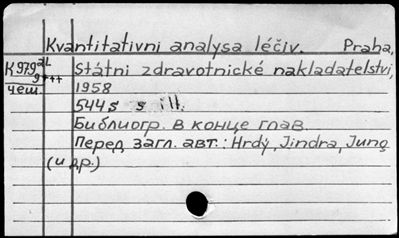 Kvantitativni analysa léčiv. Praha,
K979 2L Státni zdravotnické nakladatelství,
9+++
чеш. 1958
544s s ill.
Библиогр. в конце глав.
Перед загл. авт.: Hrdý, Jindra, Jung
(и др.)